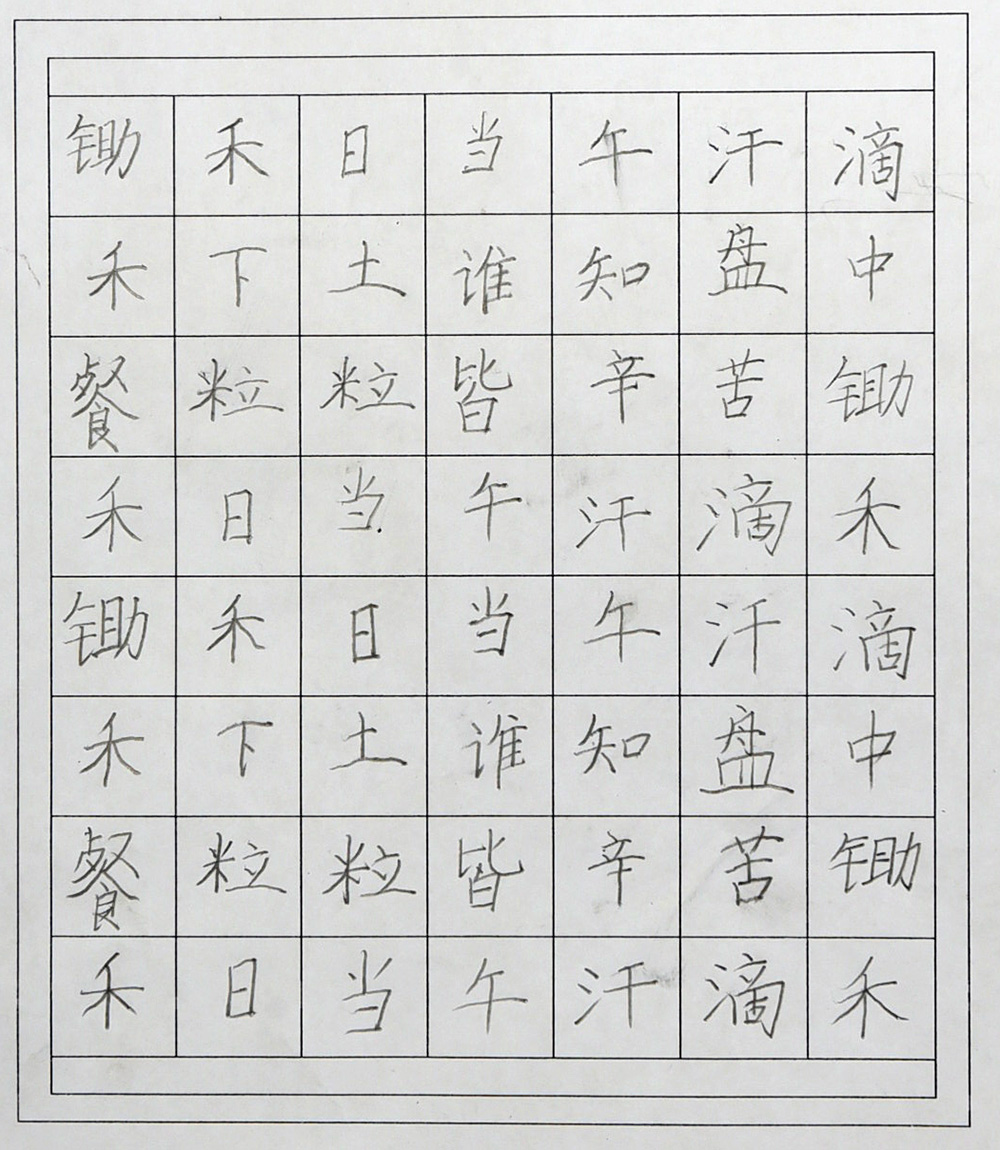 锄禾日当午汗滴
禾下土谁知盘中
餐粒粒皆辛苦锄
禾日当午汗滴禾
锄禾日当午汗滴
禾下土谁知盘中
餐粒粒皆辛苦锄
禾日当午汗滴禾